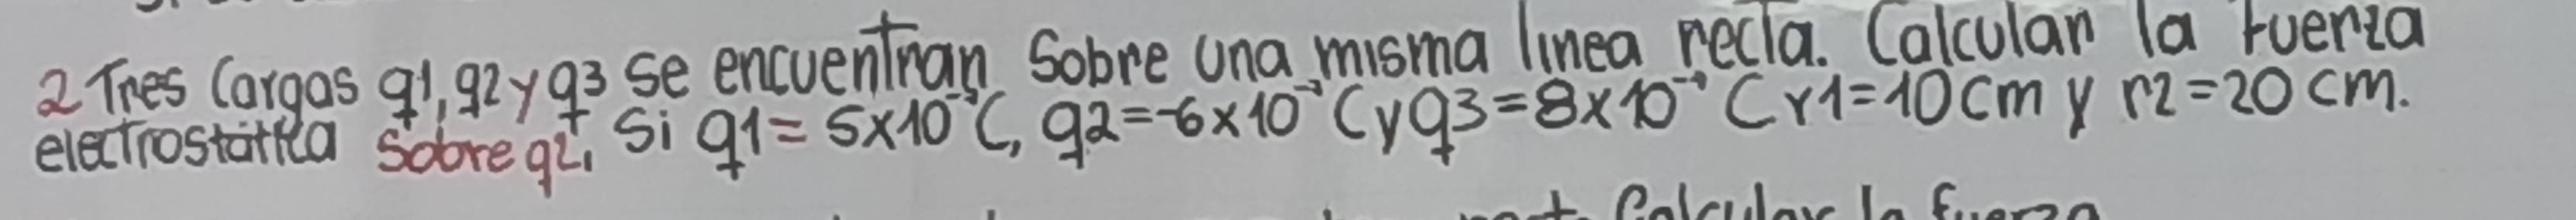 2 Tres Cargas q1, q2 y q3 se encuentran sobre una misma linea recta. Calcular la fuerza
electrostática sobre q2, Si q1 = 5x10 C, q2 = -6x10 C y q3 = 8x10 C r1 = 10 cm y r2 = 20 cm.
Calcular la fuerza